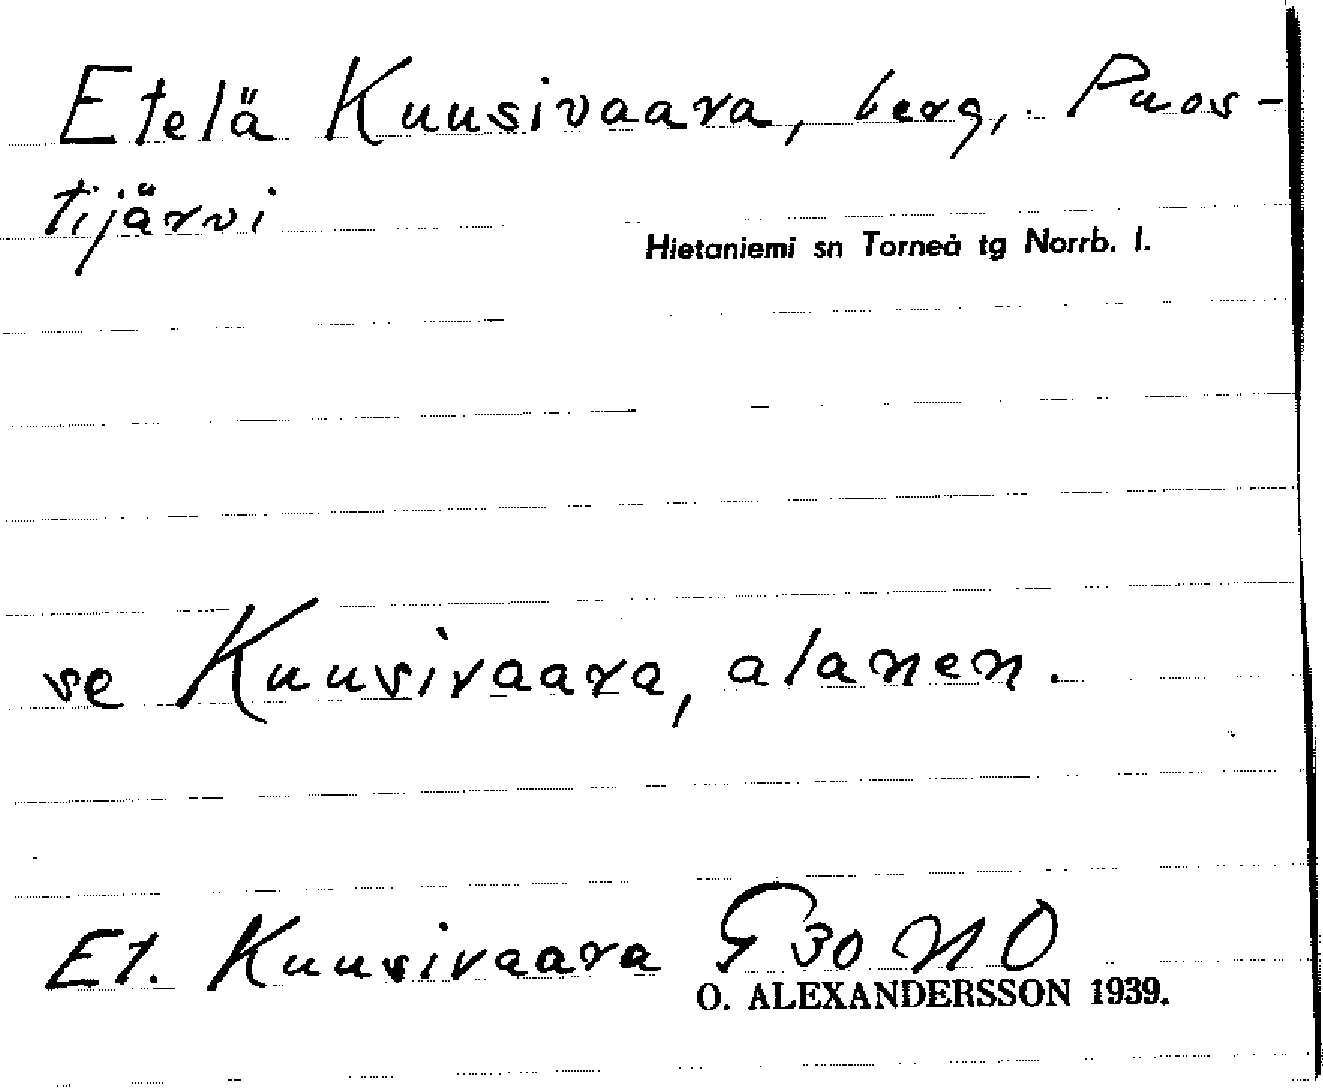 Etelä Kuusivaara, berg, Puos-
tijärvi
Hietaniemi sn Torneå tg Norrb. l.
se Kuusivaara, alanen.
Et. Kuusivaara G 30 NO
O. ALEXANDERSSON 1939.